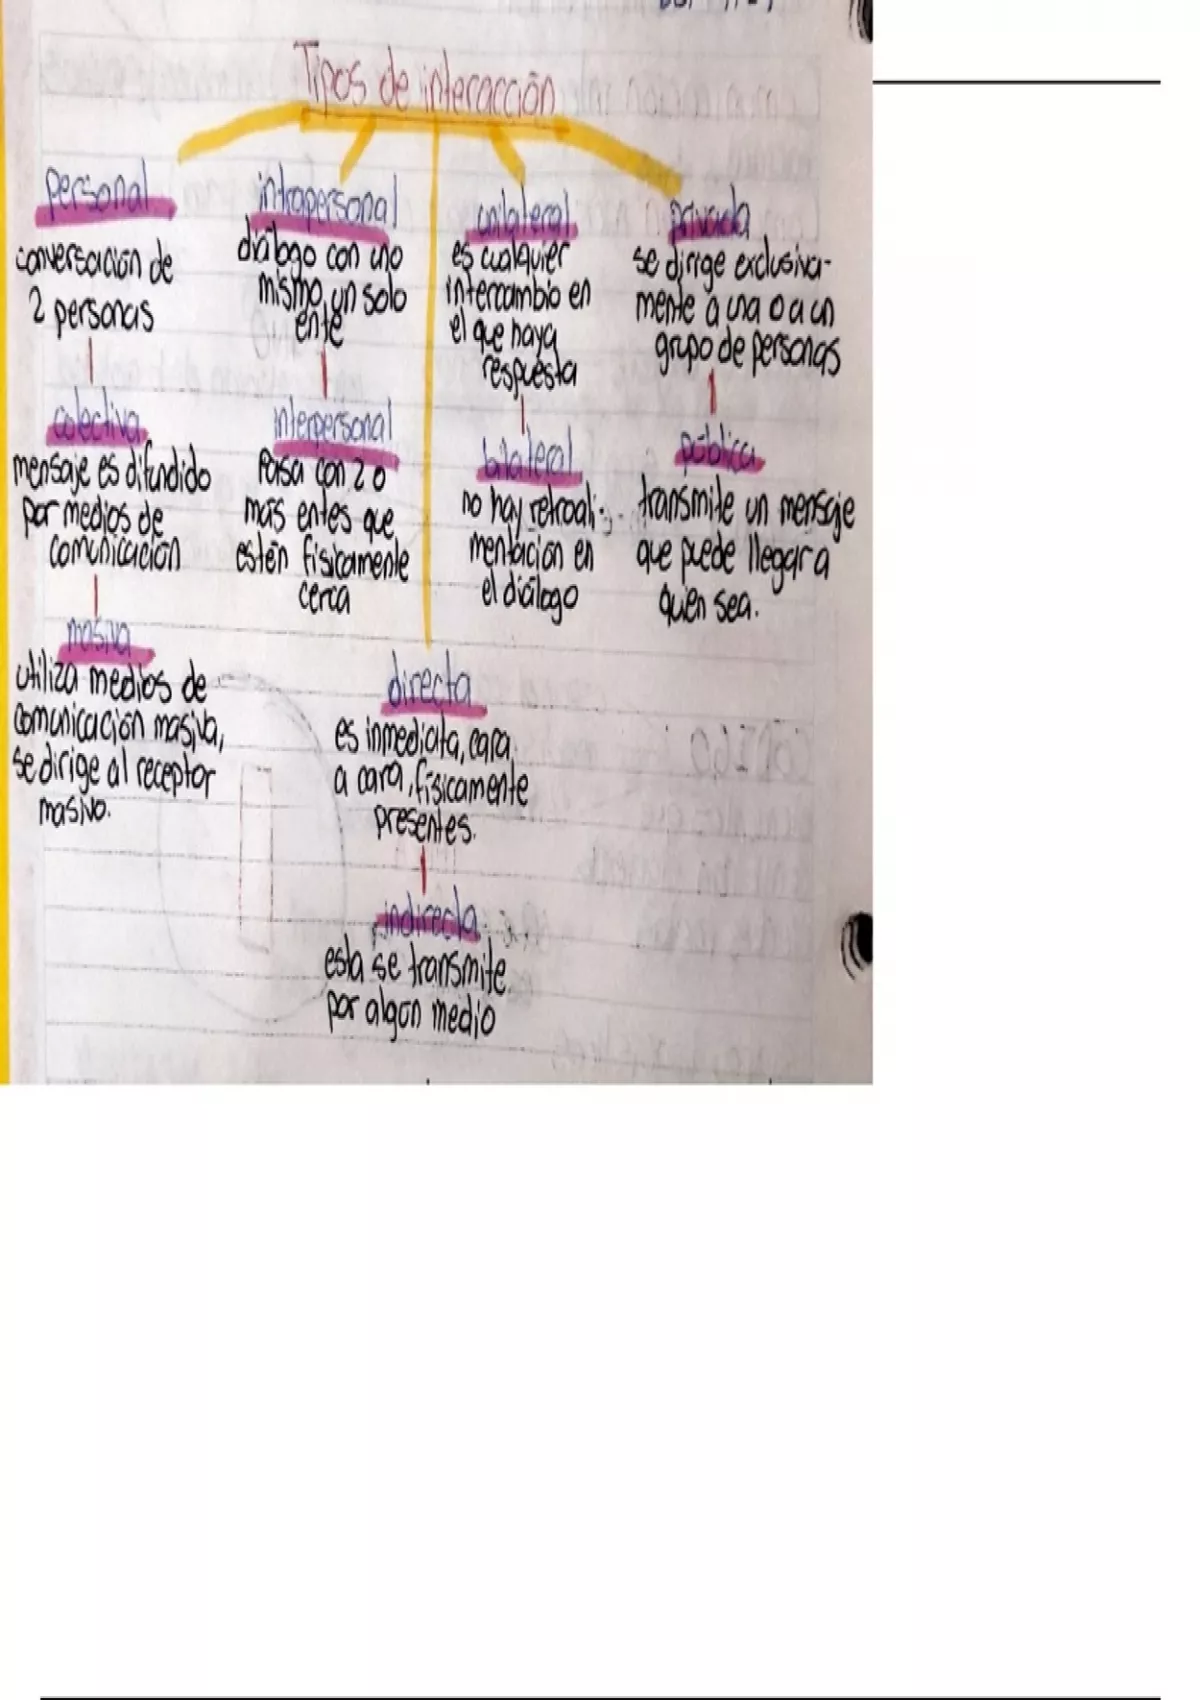 Tipos de interacción
personal
conversación de
2 personas
colectiva
mensaje es difundido
por medios de
comunicación
masiva
utiliza medios de
comunicación masiva,
se dirige al receptor
masivo.
intrapersonal
diálogo con uno
mismo, un solo
ente
interpersonal
Pasa con 2 o
más entes que
estén físicamente
cerca
unilateral
es cualquier
intercambio en
el que haya
respuesta
bilateral
no hay retroali-
mentación en
el diálogo
privada
se dirige exclusiva-
mente a una o a un
grupo de personas
pública
transmite un mensaje
que puede llegar a
quien sea.
directa
es inmediata, cara
a cara, físicamente
presentes.
indirecta
esta se transmite
por algún medio